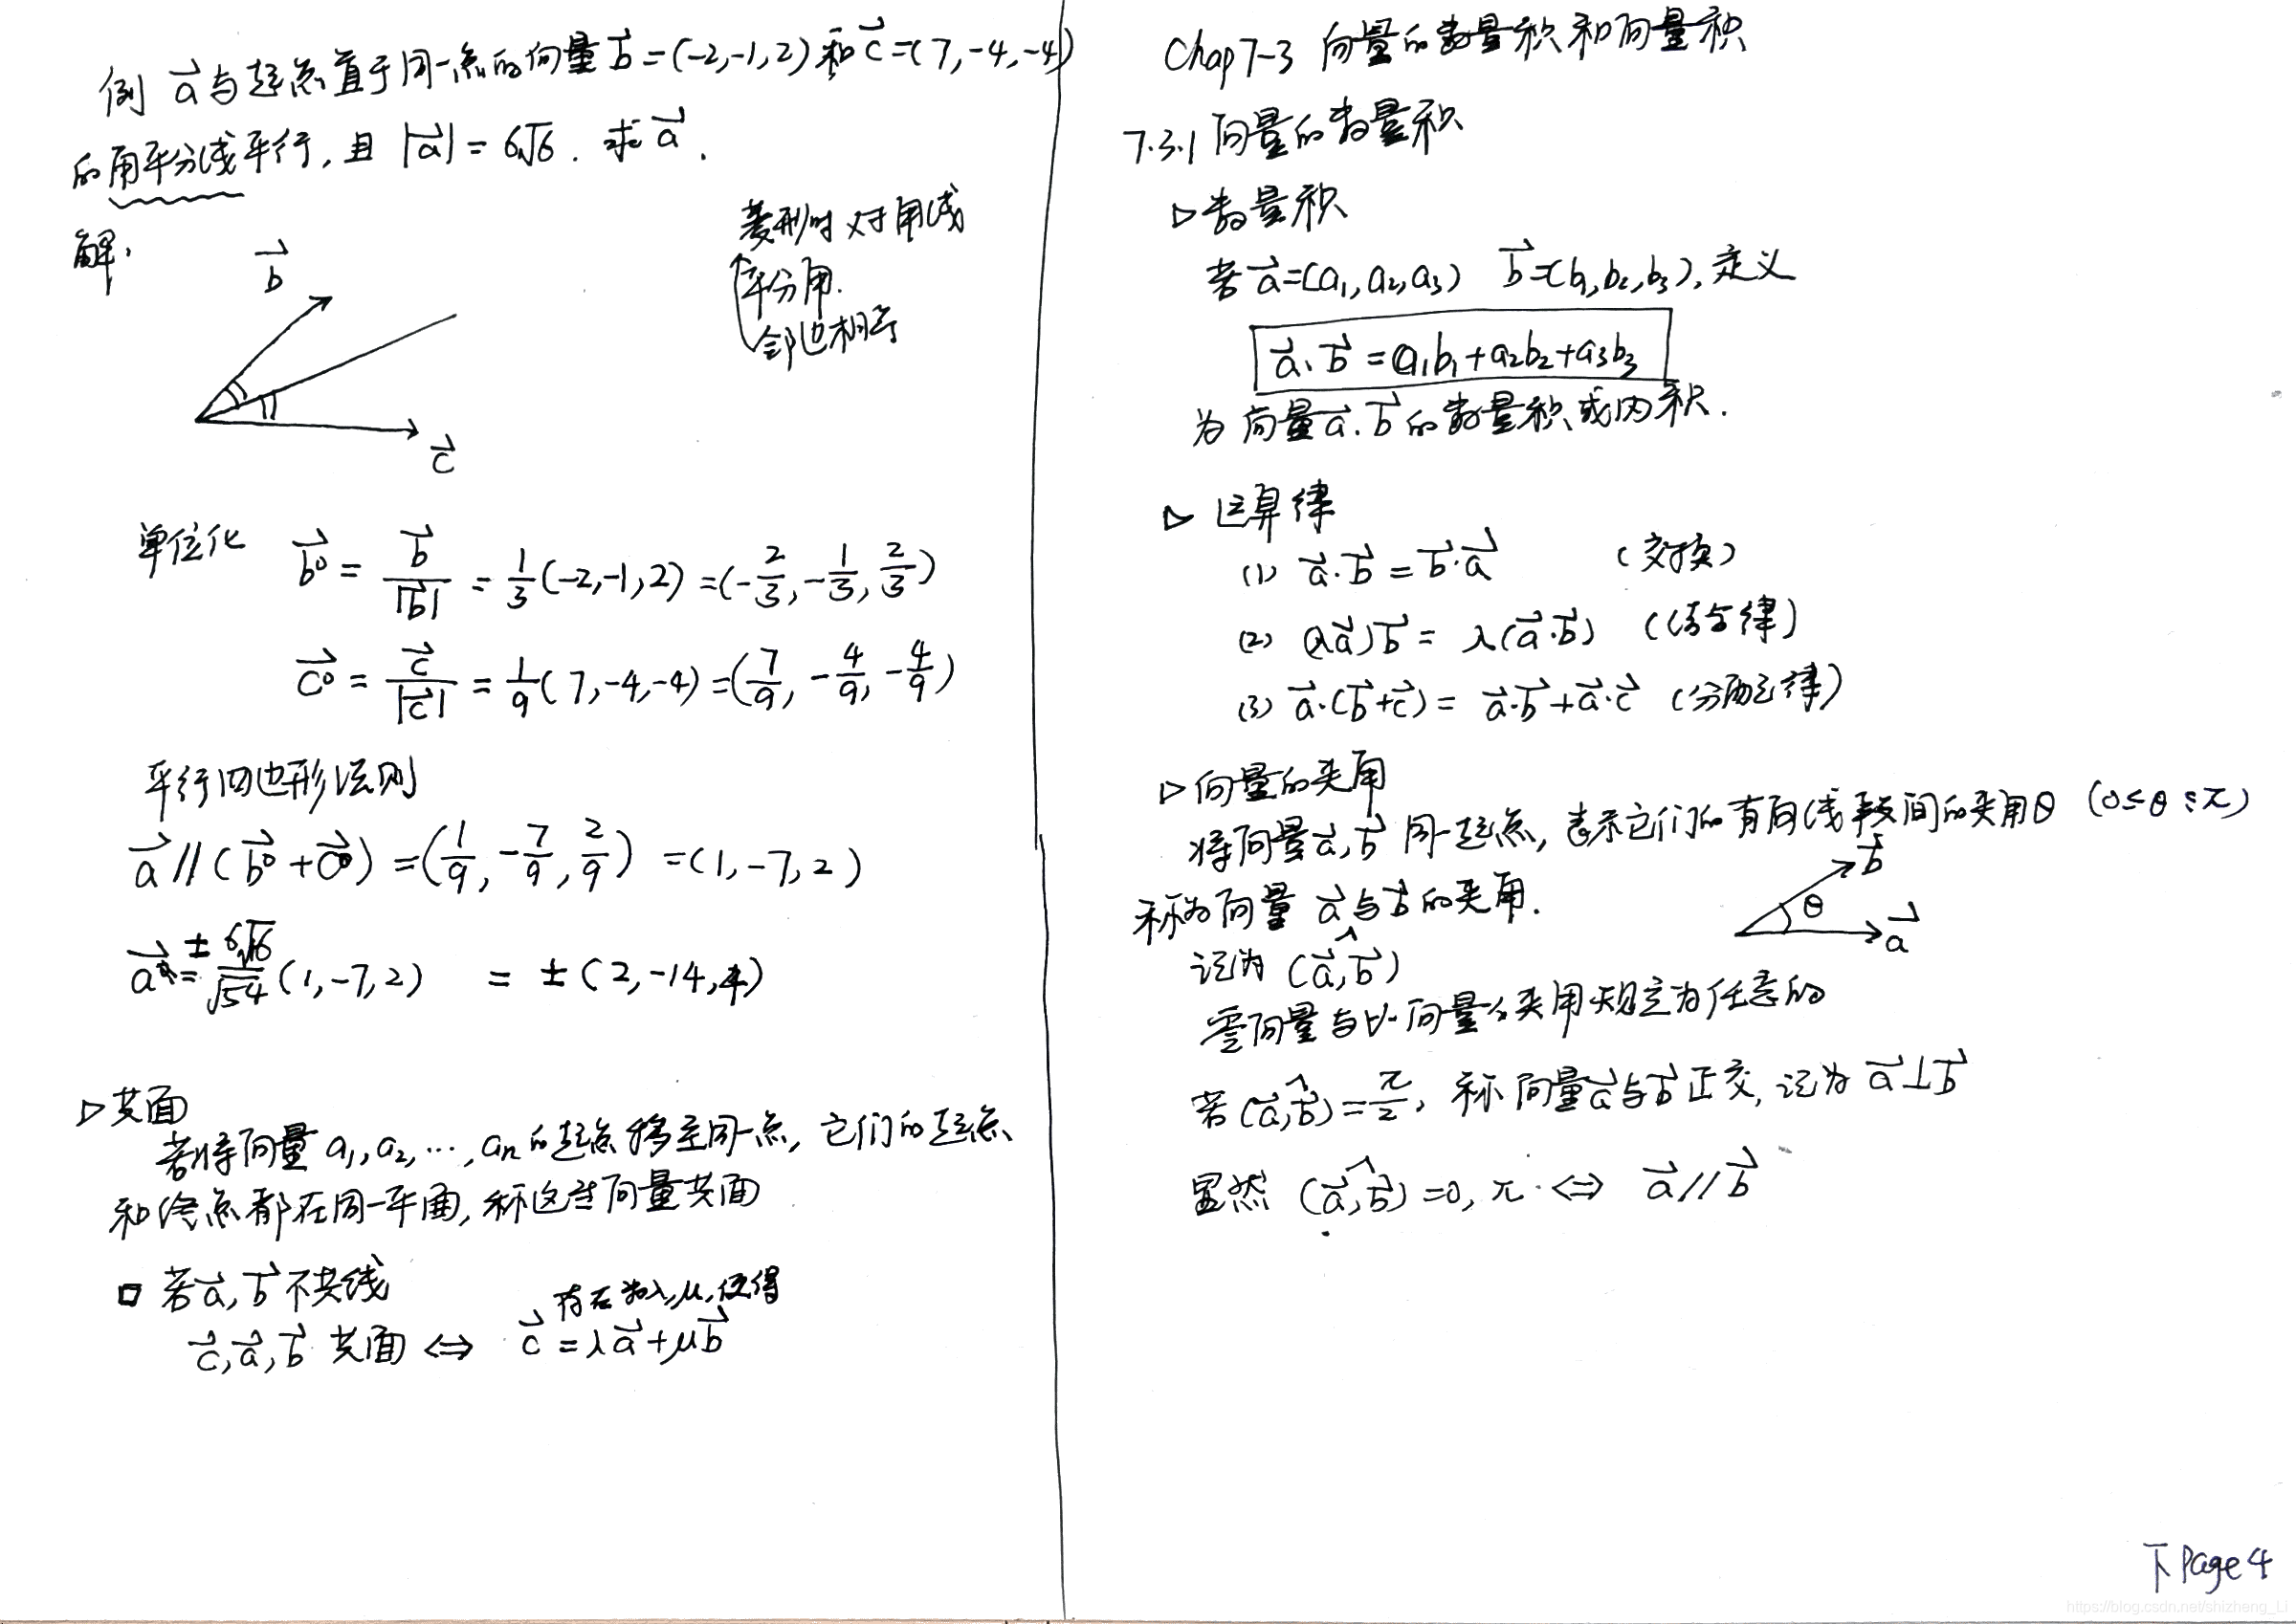 例 a⃗与起点置于同一点的向量 b⃗=(-2,-1,2)和 c⃗=(7,-4,-4)
的角平分线平行, 且 |a⃗|=6√6. 求 a⃗.
解:
b⃗
c⃗
菱形时 对角线
平分角.
邻边相等
单位化 b⃗⁰ = b⃗/|b⃗| = 1/3(-2,-1,2) =(-2/3,-1/3,2/3)
c⃗⁰ = c⃗/|c⃗| = 1/9(7,-4,-4) =(7/9,-4/9,-4/9)
平行四边形法则
a⃗ // (b⃗⁰+c⃗⁰) =(1/9,-7/9,2/9) =(1,-7,2)
a⃗ = ± 6√6/√54 (1,-7,2) = ±(2,-14,4)
▷共面
若将向量 a₁,a₂,…,aₙ的起点移至同一点, 它们的起点
和终点都在同一平面, 称这些向量共面
□ 若a⃗,b⃗不共线
存在 λ,μ,使得
c⃗,a⃗,b⃗ 共面 ⇔ c⃗=λa⃗+μb⃗
Chap7-3 向量的数量积和向量积
7.3.1 向量的数量积
▷数量积
若a⃗=(a₁,a₂,a₃) b⃗=(b₁,b₂,b₃),定义
a⃗·b⃗=a₁b₁+a₂b₂+a₃b₃
为向量a⃗.b⃗的数量积或内积.
▷ 运算律
(1) a⃗·b⃗=b⃗·a⃗ (交换)
(2) (λa⃗)b⃗= λ(a⃗·b⃗) (结合律)
(3) a⃗·(b⃗+c⃗)= a⃗·b⃗+a⃗·c⃗ (分配律)
▷向量的夹角
将向量a⃗,b⃗ 同一起点, 表示它们的有向线段间的夹角θ (0≤θ≤π)
称为向量 a⃗与b⃗的夹角.
b⃗
θ
a⃗
记为 (a⃗,^b⃗)
零向量与 向量 夹角规定为任意的
若(a⃗,^b⃗)=π/2, 称向量a⃗与b⃗正交, 记为 a⃗⊥b⃗
显然 (a⃗,^b⃗)=0,π ⇔ a⃗//b⃗
下 Page 4
https://blog.csdn.net/shizheng_Li